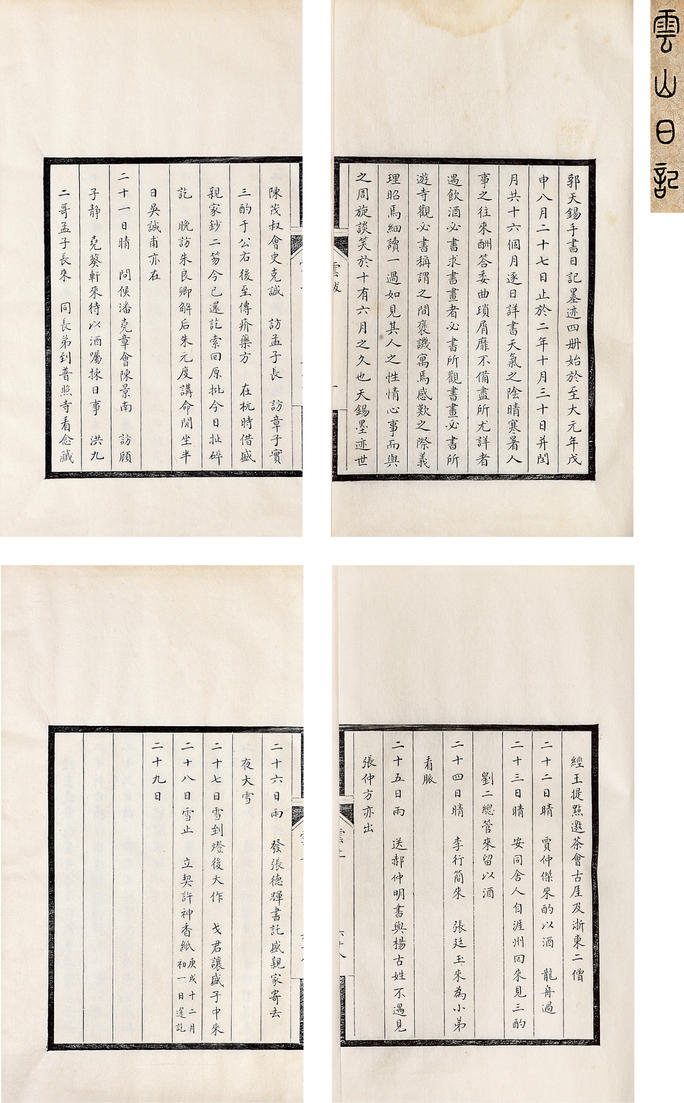 雲山日記
郭天錫手書日記墨迹四册始於至大元年戊
申八月二十七日止於二年十月三十日并閏
月共十六個月逐日詳書天氣之陰晴寒暑人
事之往來酬答委曲瑣屑靡不備盡所尤詳者
遇飲酒必書求書畫者必書所觀書畫必書所
遊寺觀必書稱謂之間褒譏寓焉感歎之際義
理昭焉細讀一過如見其人之性情心事而與
之周旋談笑於十有六月之久也天錫墨迹世
陳茂叔會史克誠 訪孟子長 訪章子實
三酌于公右後至傳疥藥方 在杭時借戚
親家鈔二笏今已還訖索回原批今日扯碎
訖 晚訪朱良卿解后朱元度講命閒坐半
日吳誠甫亦在
二十一日晴 問候潘堯章會陳景南 訪顧
子靜 堯葵軒來待以酒囑揀日事 洪九
二哥孟子長來 同長弟到普照寺看念藏
經王提點邀茶會古厓及浙東二僧
二十二日晴 賈仲傑來酌以酒 龍舟過
二十三日晴 安同舍人自涯州回來見三酌
劉二總管來留以酒
二十四日晴 李行簡來 張廷玉來為小弟
看脈
二十五日雨 送郝仲明書與楊古姓不遇見
張仲方亦出
二十六日雨 發張德輝書託戚親家寄去
夜大雪
二十七日雪到燈後大作 戈君讓戚子中來
二十八日雪止 立契許神香紙庚戌十二月初一日還訖
二十九日